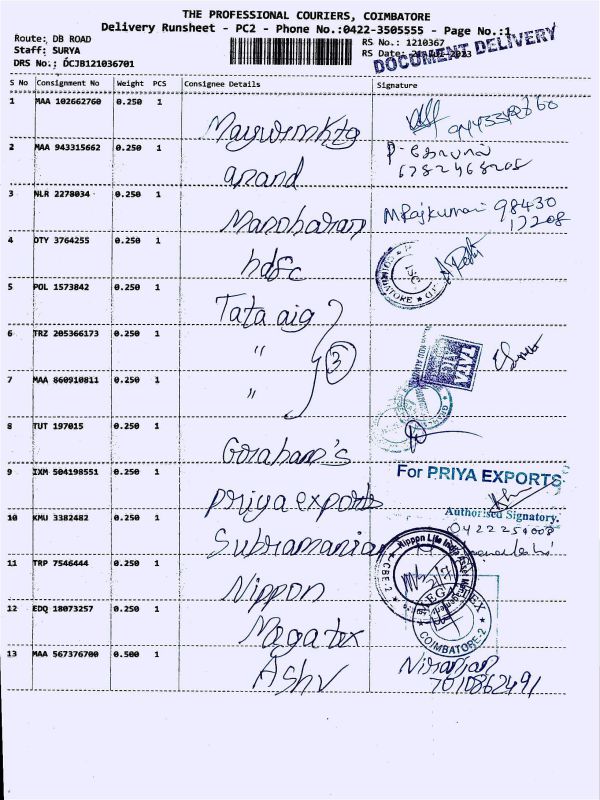 THE PROFESSIONAL COURIERS, COIMBATORE
Delivery Runsheet - PC2 - Phone No.:0422-3505555 - Page No.:1
Route: DB ROAD
RS No.: 1210367
Staff: SURYA
RS Date:
DOCUMENT DELIVERY
DRS No.: DCJB121036701
S No Consignment No Weight PCS Consignee Details Signature
1 MAA 102662760 0.250 1
2 MAA 943315662 0.250 1
anand
3 NLR 2278034 0.250 1
Manoharan MRajkumari 98430
17208
4 DTY 3764255 0.250 1
hdfc
COIMBATORE
5 POL 1573842 0.250 1
Tata aig
6 TRZ 205366173 0.250 1
" 3
TATA
7 MAA 860910811 0.250 1
"
8 TUT 197015 0.250 1
Goraham's
9 IXM 504198551 0.250 1
For PRIYA EXPORTS
Priya exports
Authorised Signatory.
10 KMU 3382482 0.250 1
Subramania
11 TRP 7546444 0.250 1
Nippon Life India
CBE-2
Nippon
12 EDQ 18073257 0.250 1
Mega tex
COIMBATORE-2
13 MAA 567376700 0.500 1
Ashv Niranjan
7010862491